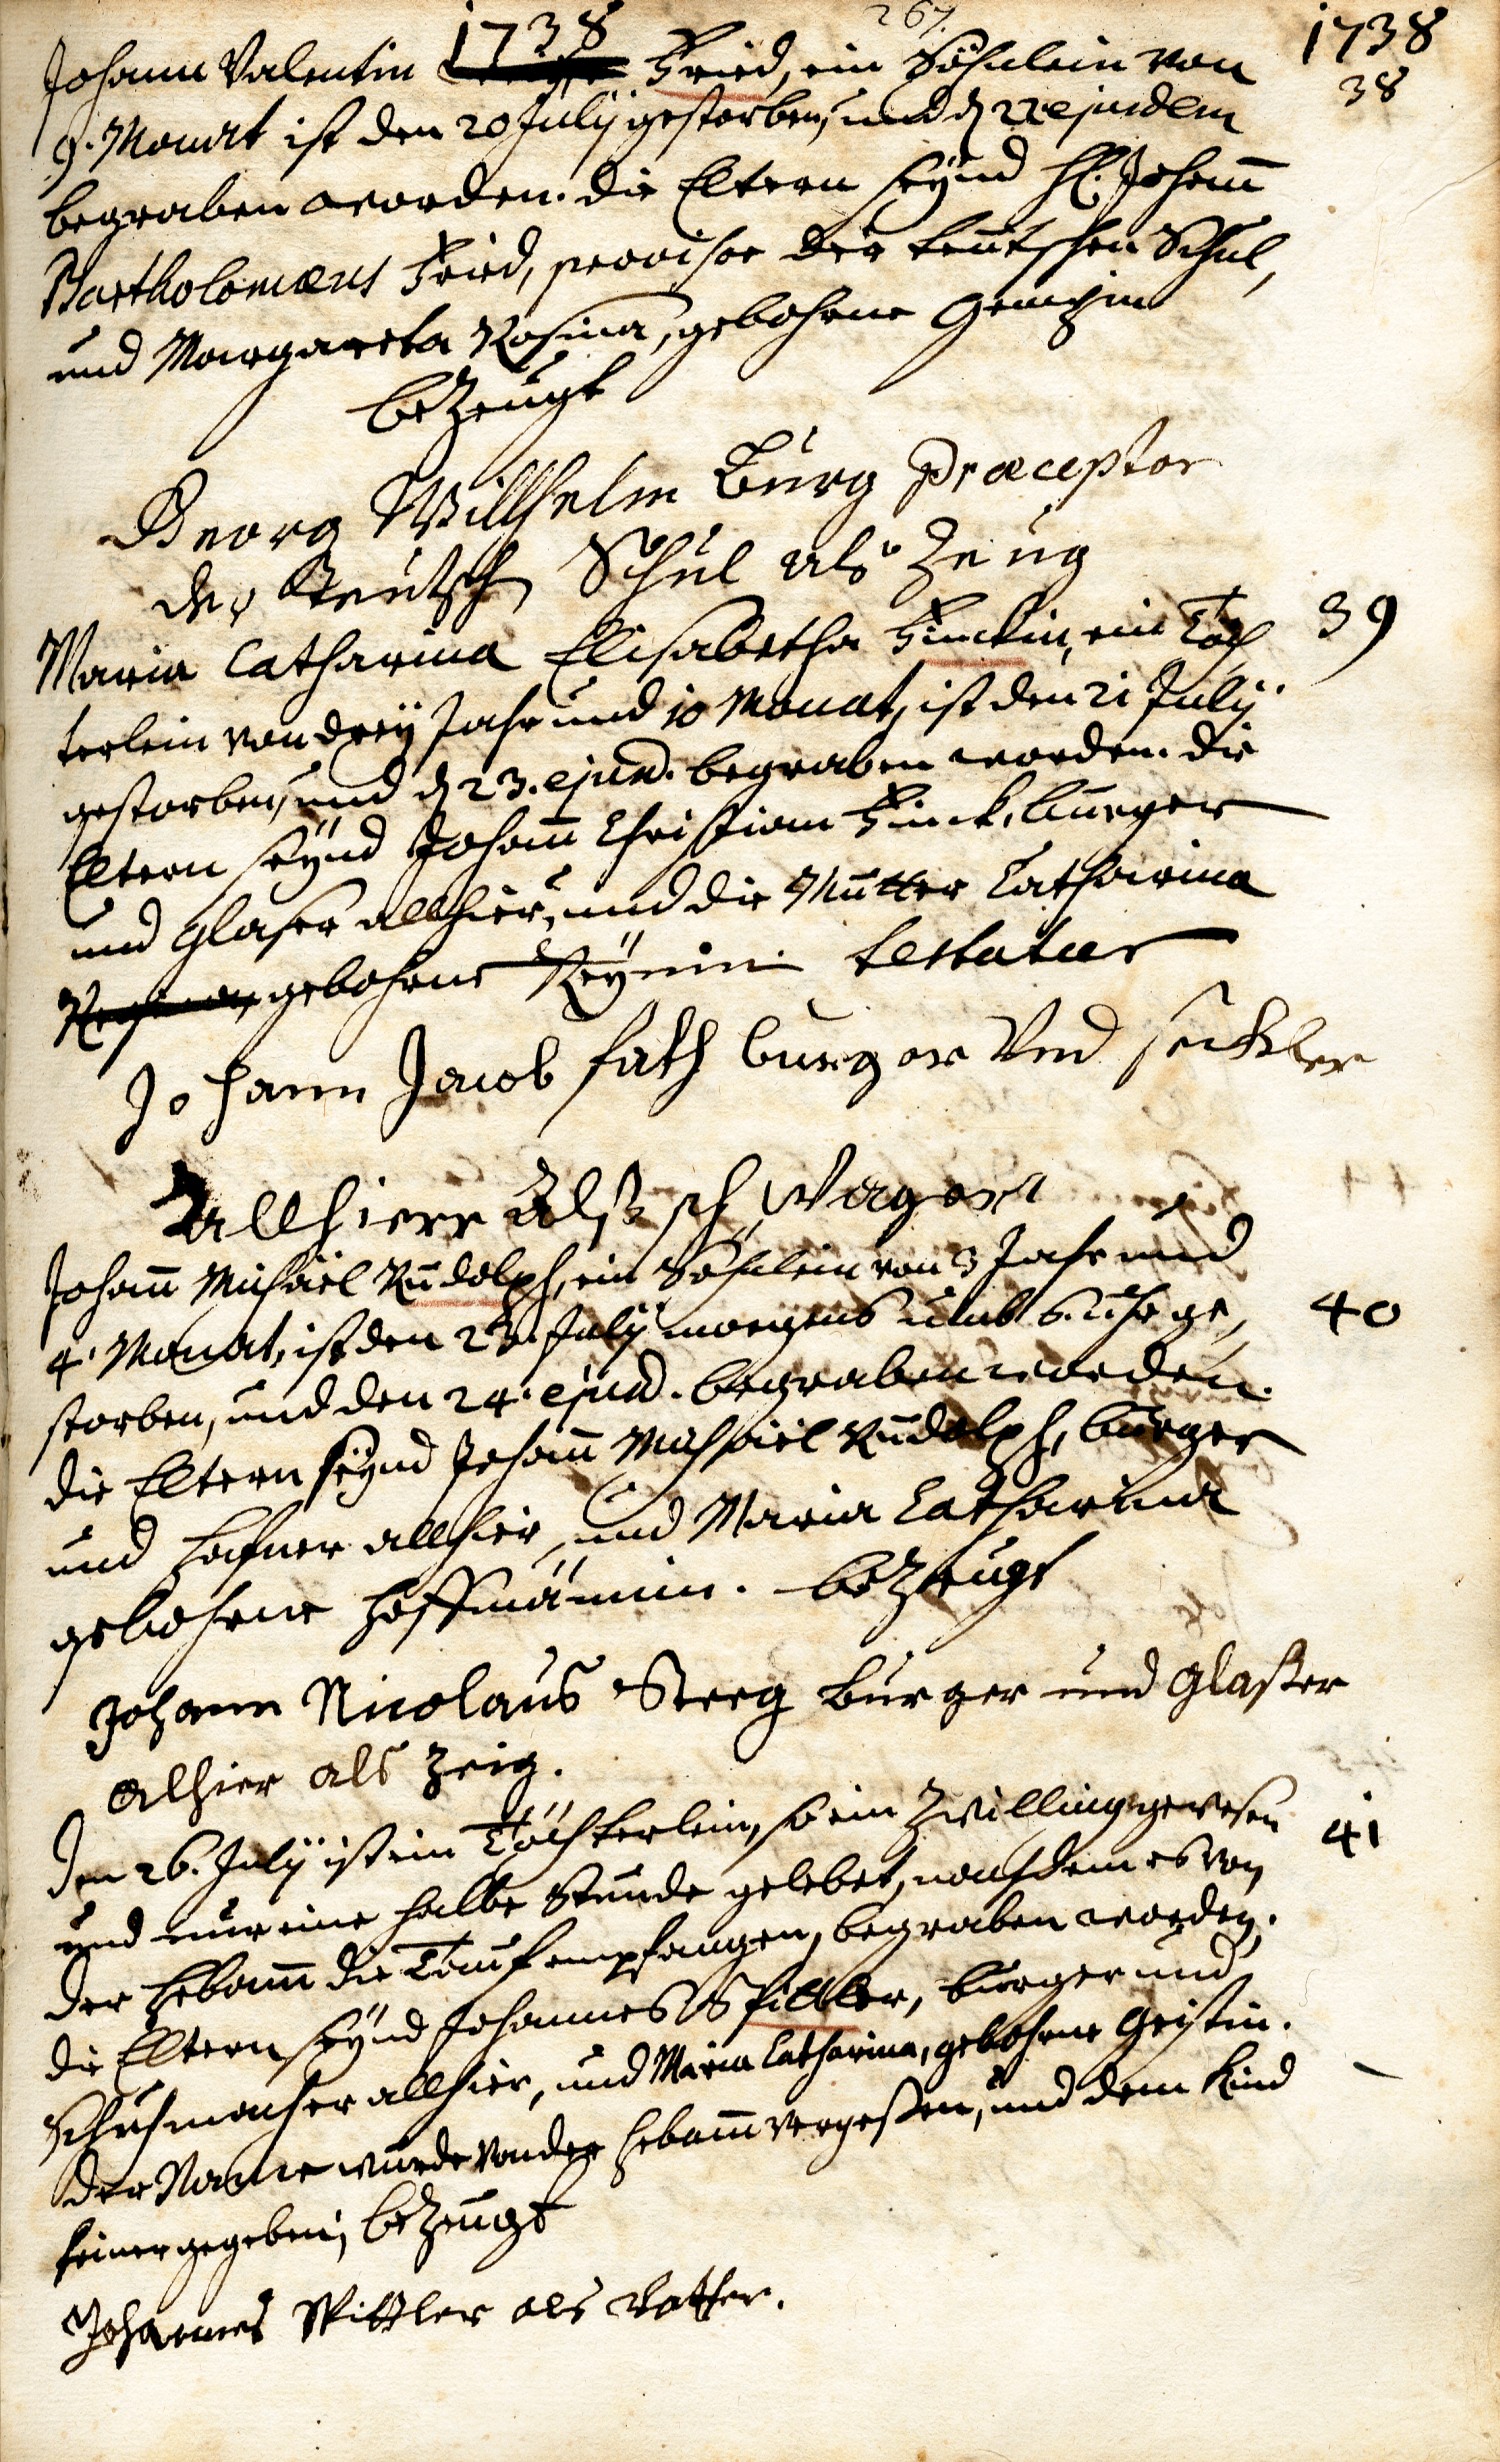 1738 267. 1738
Johann Valentin Fried, ein Söhnlein von 38
9. Monat ist den 20 Julij gestorben, und d 22 ejusdem
begraben worden. die Eltern seynd H. Johann
Bartholomæus Fried, provisor der teutschen Schul,
und Margareta Rosina, gebohrne
bezeugt
Georg Willhelm Burg Præceptor
der Teutsch Schul als Zeug
Maria Catharina Elisabetha Finckin, ein Töch 39
terlein von drey Jahr und 10 Monat, ist den 21 Julij
gestorben, und d 23. ejusd. begraben worden. die
Eltern seynd Johann Christian Finck, burger
und Glaser allhier, und die Mutter Catharina
gebohrne testatur
Johann Jacob fath burger Vnd seckler
allhierr Alß schwager
Johann Michäel Rudolph, ein Söhnlein von 3 Jahr und
4. Monat, ist den 23. Julij morgens umb 6. Uhr ge, 40
storben, und den 24. ejusd. begraben worden.
die Eltern seynd Johann Michäel Rudolph, burger
und Hafner allhier, und Maria Catharina
gebohrne Hoffmännin. bezeugt
Johann Nicolaus Steeg burger und glaßer
alhier als zeig.
Den 26. Julij ist ein Töchterlein, so ein Zwilling gewesen 41
und nur eine halbe Stunde gelebet, nachdem es von
der Hebamm die Tauf empfangen, begraben worden,
die Eltern seynd Johannes Spittler, burger und
Schuhmacher allhier, und Maria Catharina, gebohrne Geistin.
der Name wurde von der Hebamm vergessen, und dem Kind
keiner gegeben, bezeugt
Johannes Spittler als vatter.